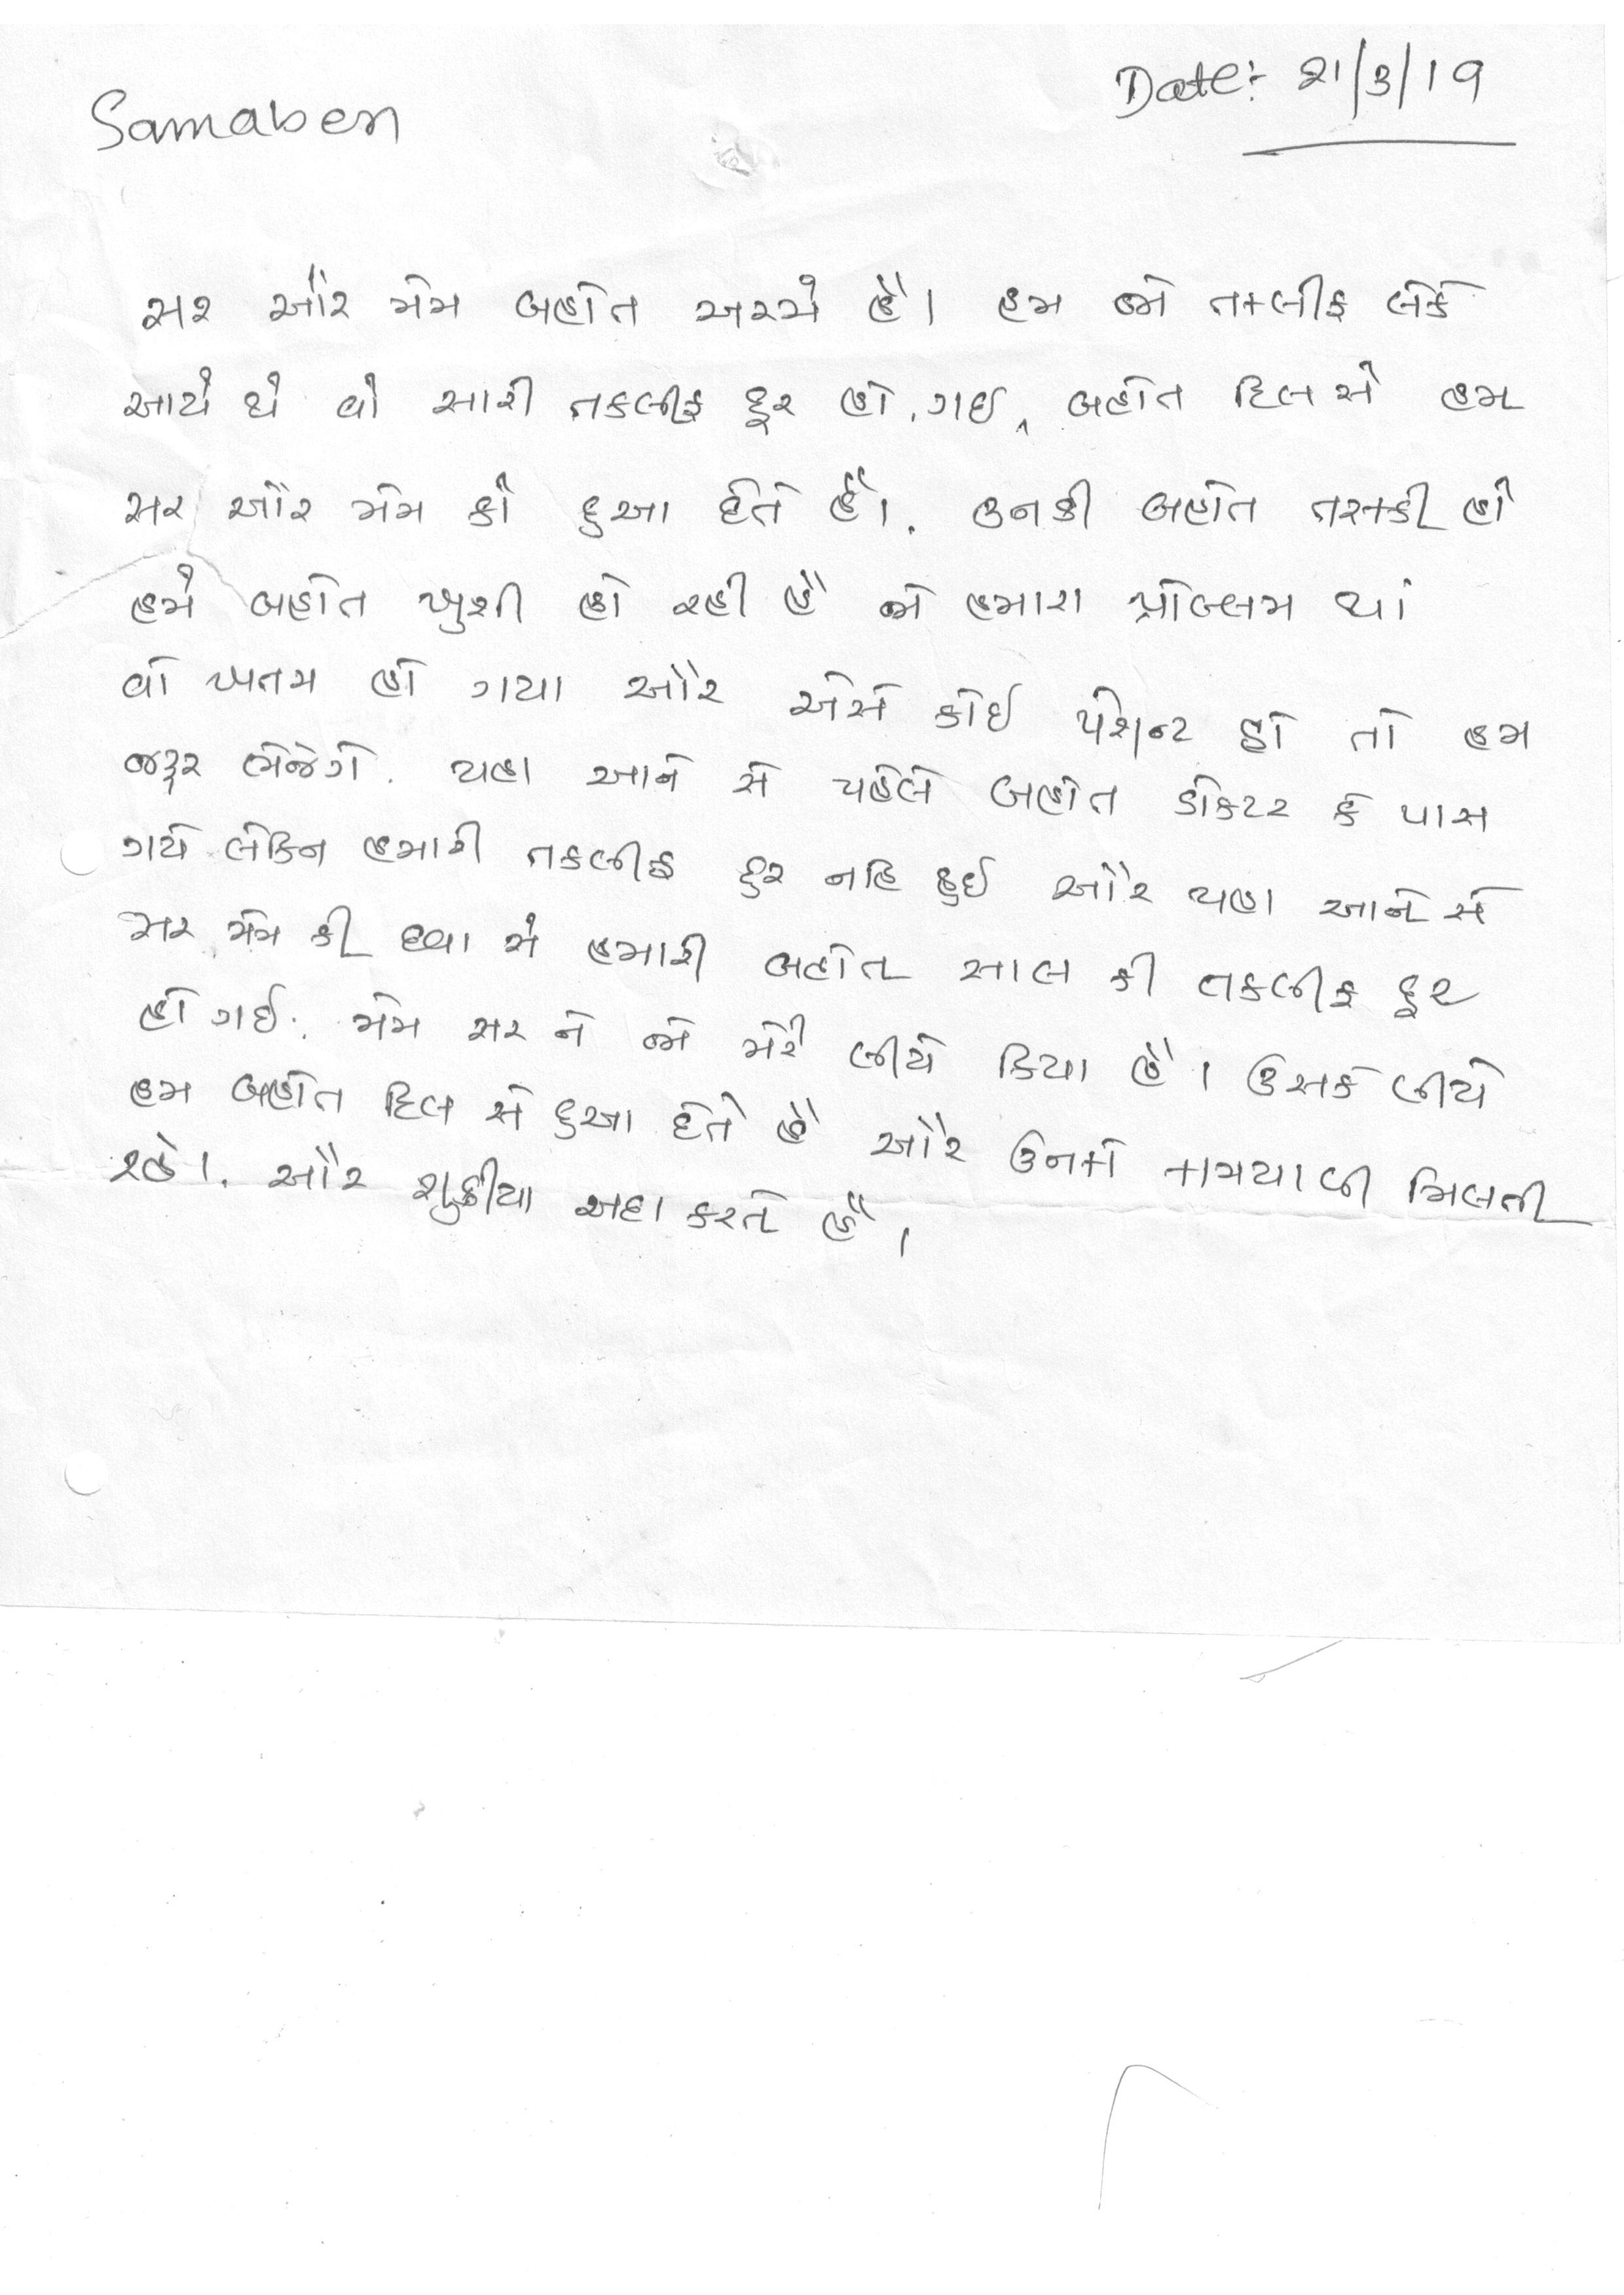 Samaben
Date:- 21/3/19
સર ઔર મેમ બહોત અચ્છે હૈ। હમ જો તકલીફ લેકે
આયે થે વો સારી તકલીફ દૂર હો ગઇ, બહોત દિલ સે હમ
સર ઔર મેમ કો દુઆ દેતે હૈ।. ઉનકી બહોત તરક્કી હો
હમે બહોત ખુશી હો રહી હૈ જો હમારા પ્રોબ્લમ થાં
વો ખતમ હો ગયા ઔર એસે કોઈ પેશન્ટ હો તો હમ
જરૂર ભેજેગે. યહા આને સે પહેલે બહોત ડોકટર કે પાસ
ગયે લેકિન હમારી તકલીફ દુર નહિ હુઈ ઔર યહા આને સે
સર મેમ કી દવા સે હમારી બહોત સાલ કી તકલીફ દૂર
હો ગઇ. મેમ સર ને જો મેરે લીયે કિયા હૈ। ઉસકે લીયે
હમ બહોત દિલ સે દુઆ દેતે હૈ ઔર ઉનકો કામયાબી મિલતી
રહે।. ઔર શુક્રીયા અદા કરતે હૈ।